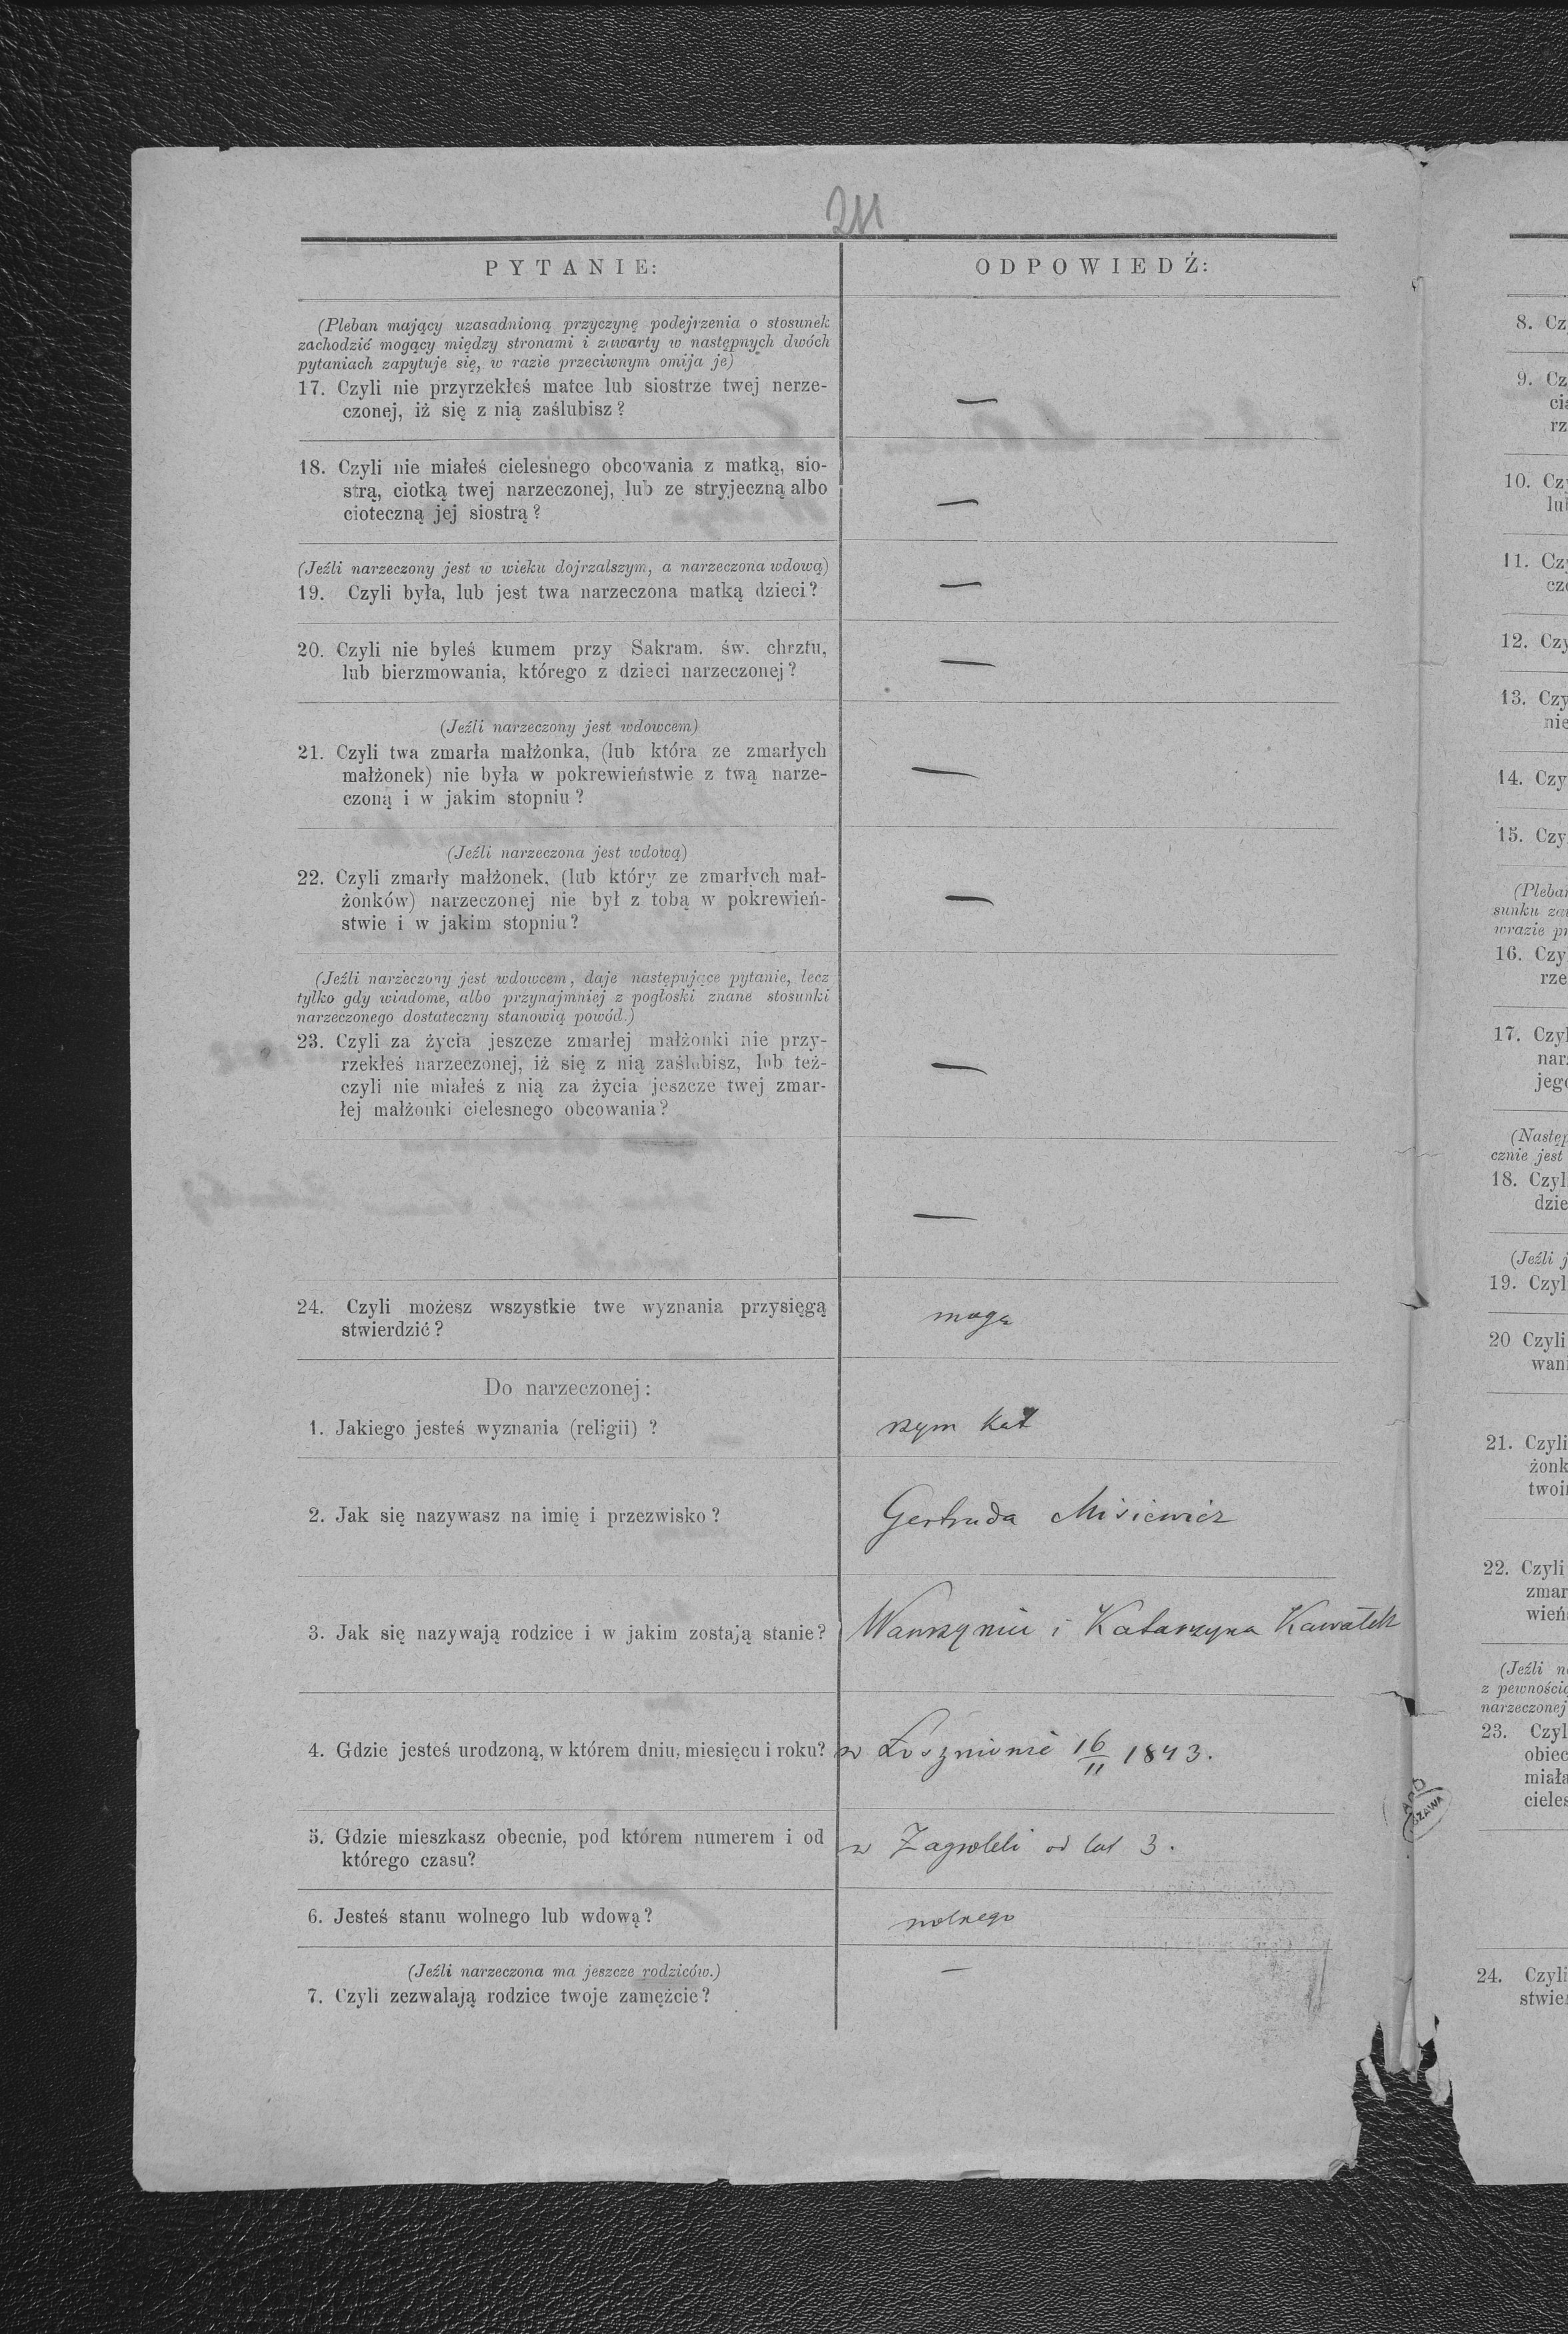 211
PYTANIE:
ODPOWIEDŹ:
(Pleban mający uzasadnioną przyczynę podejrzenia o stosunek
zachodzić mogący między stronami i zawarty w następnych dwóch
pytaniach zapytuje się, w razie przeciwnym omija je)
17. Czyli nie przyrzekłeś matce lub siostrze twej nerze-
czonej, iż się z nią zaślubisz?
—
18. Czyli nie miałeś cielesnego obcowania z matką, sio-
strą, ciotką twej narzeczonej, lub ze stryjeczną albo
cioteczną jej siostrą?
—
(Jeźli narzeczony jest w wieku dojrzalszym, a narzeczona wdową)
19. Czyli była, lub jest twa narzeczona matką dzieci?
—
20. Czyli nie byleś kumem przy Sakram. św. chrztu,
lub bierzmowania, którego z dzieci narzeczonej?
—
(Jeźli narzeczony jest wdowcem)
21. Czyli twa zmarła małżonka, (lub która ze zmarłych
małżonek) nie była w pokrewieństwie z twą narze-
czoną i w jakim stopniu?
—
(Jeźli narzeczona jest wdową)
22. Czyli zmarły małżonek, (lub który ze zmarłych mał-
żonków) narzeczonej nie był z tobą w pokrewień-
stwie i w jakim stopniu?
—
(Jeźli narzeczony jest wdowcem, daje następujące pytanie, lecz
tylko gdy wiadome, albo przynajmniej z pogłoski znane stosunki
narzeczonego dostateczny stanowią powód.)
23. Czyli za życia jeszcze zmarłej małżonki nie przy-
rzekłeś narzeczonej, iż się z nią zaślubisz, lub też-
czyli nie miałeś z nią za życia jeszcze twej zmar-
łej małżonki cielesnego obcowania?
—
—
24. Czyli możesz wszystkie twe wyznania przysięgą
stwierdzić?
mogę
Do narzeczonej:
1. Jakiego jesteś wyznania (religii) ?
rzym kat
2. Jak się nazywasz na imię i przezwisko?
Gertruda Misiewicz
3. Jak się nazywają rodzice i w jakim zostają stanie?
i Katarzyna Kawałek
4. Gdzie jesteś urodzoną, w którem dniu, miesięcu i roku?
w 16/11 1843.
5. Gdzie mieszkasz obecnie, pod którem numerem i od
którego czasu?
w Zagrobeli od lat 3.
6. Jesteś stanu wolnego lub wdową?
wolnego
(Jeźli narzeczona ma jeszcze rodziców.)
7. Czyli zezwalają rodzice twoje zamęźcie?
—
8. Cz
9. Cz
cia
rz
10. Cz
lu
11. Czy
cz
12. Czy
13. Czy
nie
14. Czy
15. Czy
(Pleban
sunku za
wrazie pr
16. Czy
rze
17. Czyl
nar
jego
(Następ
cznie jest
18. Czyl
dzie
(Jeźli j
19. Czyl
20 Czyli
wani
21. Czyli
żonk
twoi
22. Czyli
zmar
wień
(Jeźli n
z pewnością
narzeczonej
23. Czyl
obiec
miała
cieles
24. Czyli
stwie